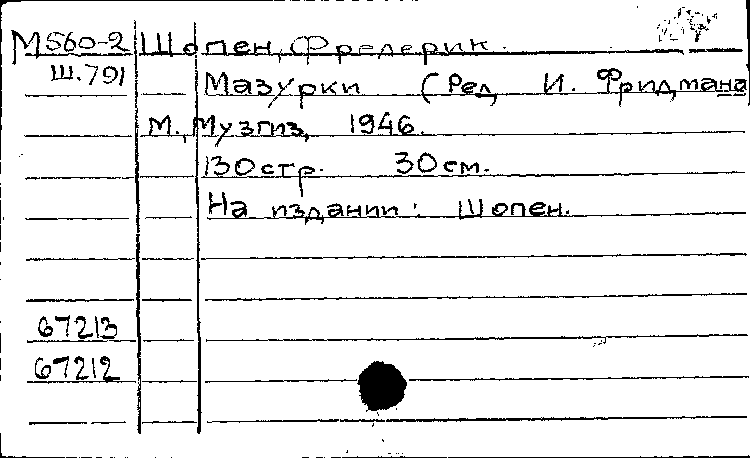 М560-2 Шопен, Фредерик.
Ш.791 Мазурки (Ред И. Фридмана
М., Музгиз, 1946.
130стр. 30см.
На издании: Шопен.
67213
67212